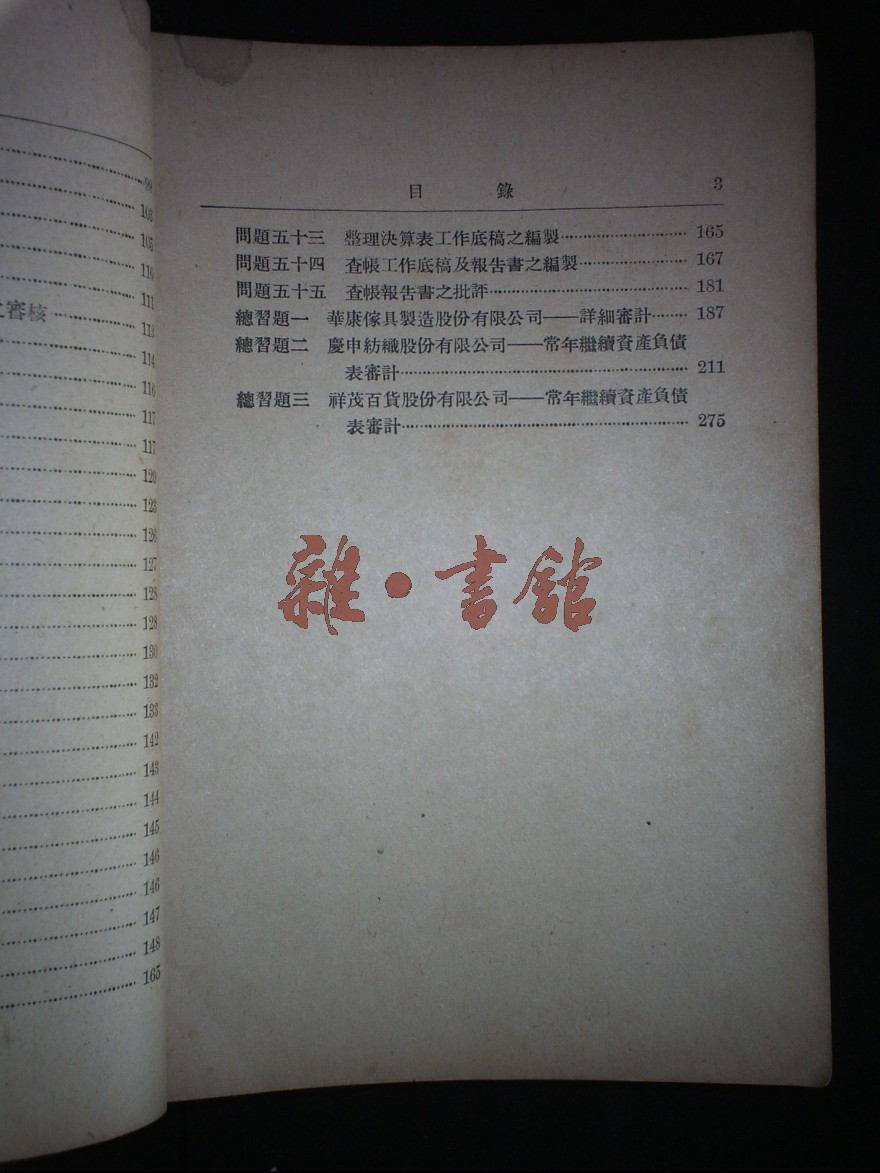 99
103
105
110
111
審核 113
114
116
117
117
120
123
126
127
128
128
130
132
133
142
143
144
145
146
146
147
148
165
目 錄 3
問題五十三 整理決算表工作底稿之編製 165
問題五十四 查帳工作底稿及報告書之編製 167
問題五十五 查帳報告書之批評 181
總習題一 華康傢具製造股份有限公司——詳細審計 187
總習題二 慶申紡織股份有限公司——常年繼續資產負債
表審計 211
總習題三 祥茂百貨股份有限公司——常年繼續資產負債
表審計 275
雜·書館